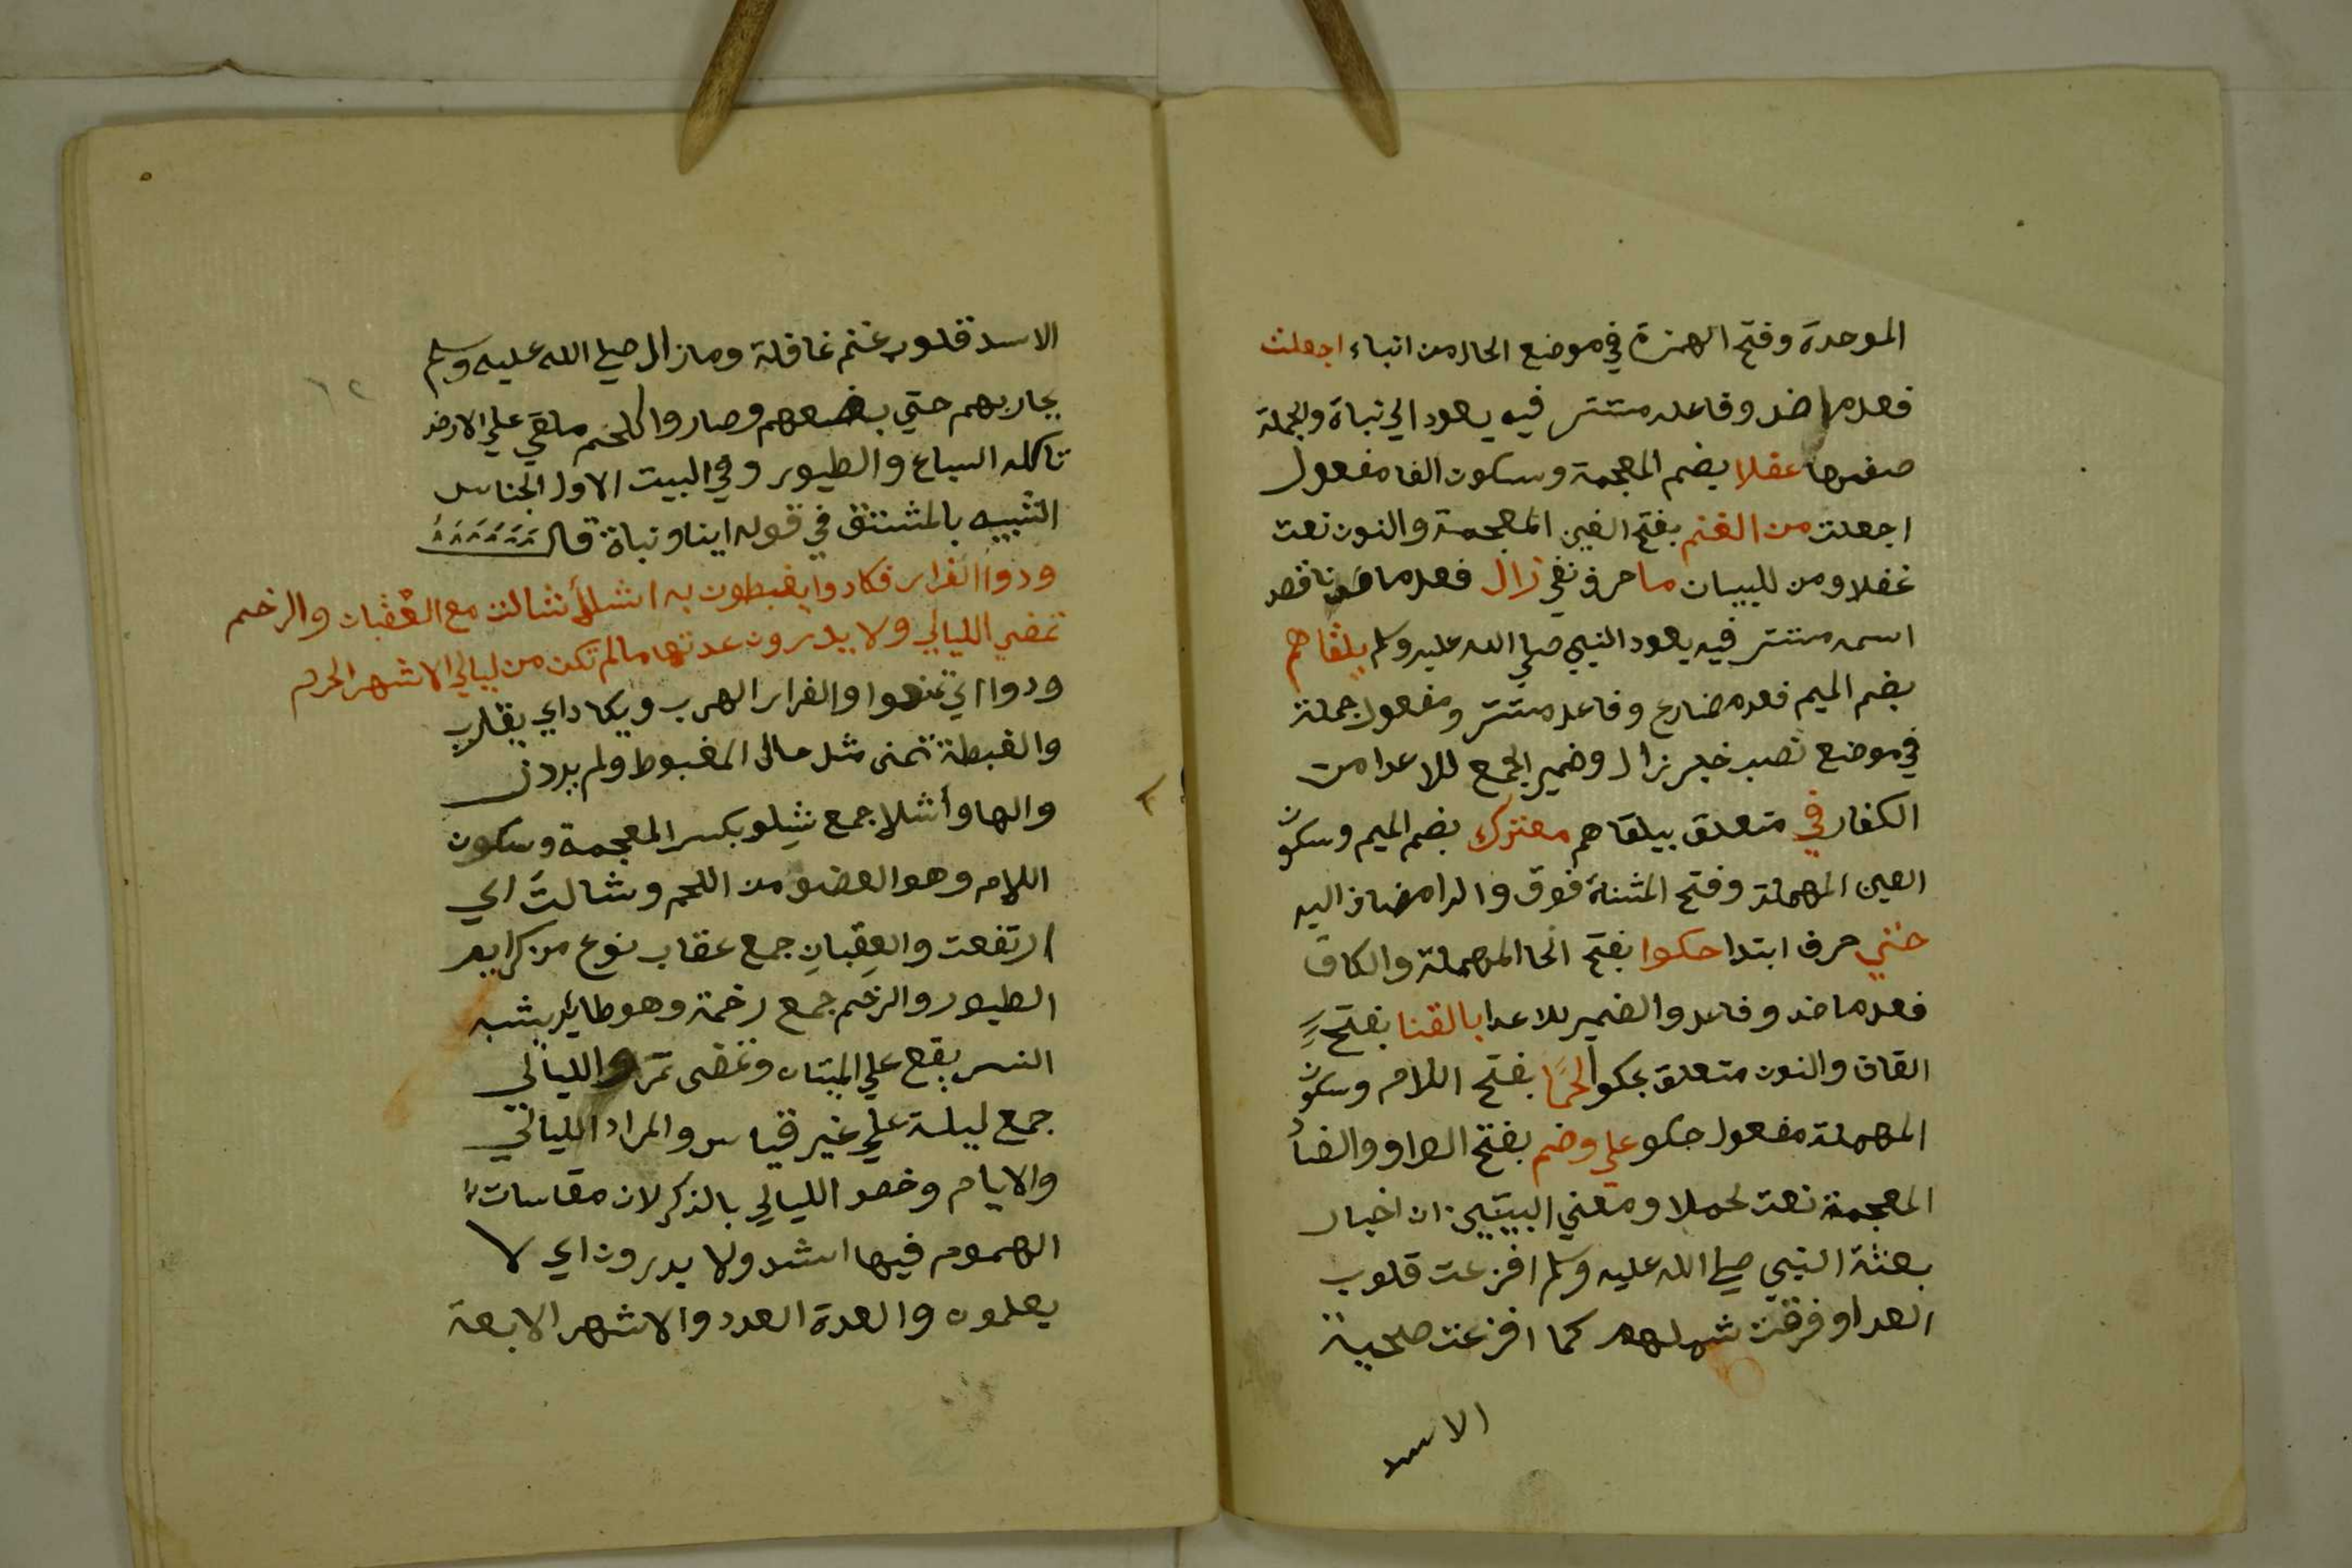 الموحدة وفتح الهمزة في موضع الحال من انباء اجفلت
فعل ماض وفاعله مستتر فيه يعود الي نباة والجملة
صفتها غفلا بضم المعجمة وسكون الفا مفعول
اجفلت من الغنم بفتح الغين المعجمة والنون نعت
غفلا ومن للبيان ما حرف نفي زال فعل ماض ناقص
اسمه مستتر فيه يعود النبي صلي الله عليه وسلم يلقاهم
بضم الميم فعل مضارع وفاعل مستتر ومفعول جملة
في موضع نصب خبر زال وضمير الجمع للاعدا من
الكفار في متعلق بيلقاهم معترك بضم الميم وسكون
العين المهملة وفتح المثناة فوق والرا مضاف اليه
حتي حرف ابتدا حكوا بفتح الحا المهملة والكاف
فعل ماض وفاعل والضمير للاعدا بالقنا بفتح
القاف والنون متعلق بحكوا لحما بفتح اللام وسكون
المهملة مفعول حكو علي وضم بفتح الواو والضاد
المعجمة نعت لحملا ومعني البيتين ان اخبار
بعثة النبي صلي الله عليه وسلم افزعت قلوب
العدا وفرقت شملهم كما افزعت صلحية
الاسد
١٢
الاسد قلوب غنم غافلة ومازال صلي الله عليه وسلم
يحاربهم حتي بضعهم وصاروا كلحم ملقي علي الارض
تاكله السباع والطيور وفي البيت الاول الجناس
الشبيه بالمشتق في قوله ابنا ونباة قال
ودوا الفرار فكادوا يغبطون به اشلأ شالت مع العقبان والرخم
تمضي الليالي ولا يدرون عدتها مالم تكن من ليالي الاشهر الحرم
ودوا اي تمنوا والفرار الهرب ويكاد اي يقارب
والغبطة تمنى مثل حال المغبوط ولم يرد
والها وأشلا جمع شِلو بكسر المعجمة وسكون
اللام وهو العضو من اللحم وشالت اي
ارتفعت والعِقبانِ جمع عقاب نوع من كرايم
الطيور والرخم جمع رخمة وهو طاير يشبه
النسر يقع علي الميتات وتمضى تمر والليالى
جمع ليلة علي غير قياس والمراد الليالي
والايام وخص الليالي بالذكر لان مقاسات
الهموم فيها اشد ولا يدرون اي لا
يعلمون والعدة العدد والاشهر الابعة